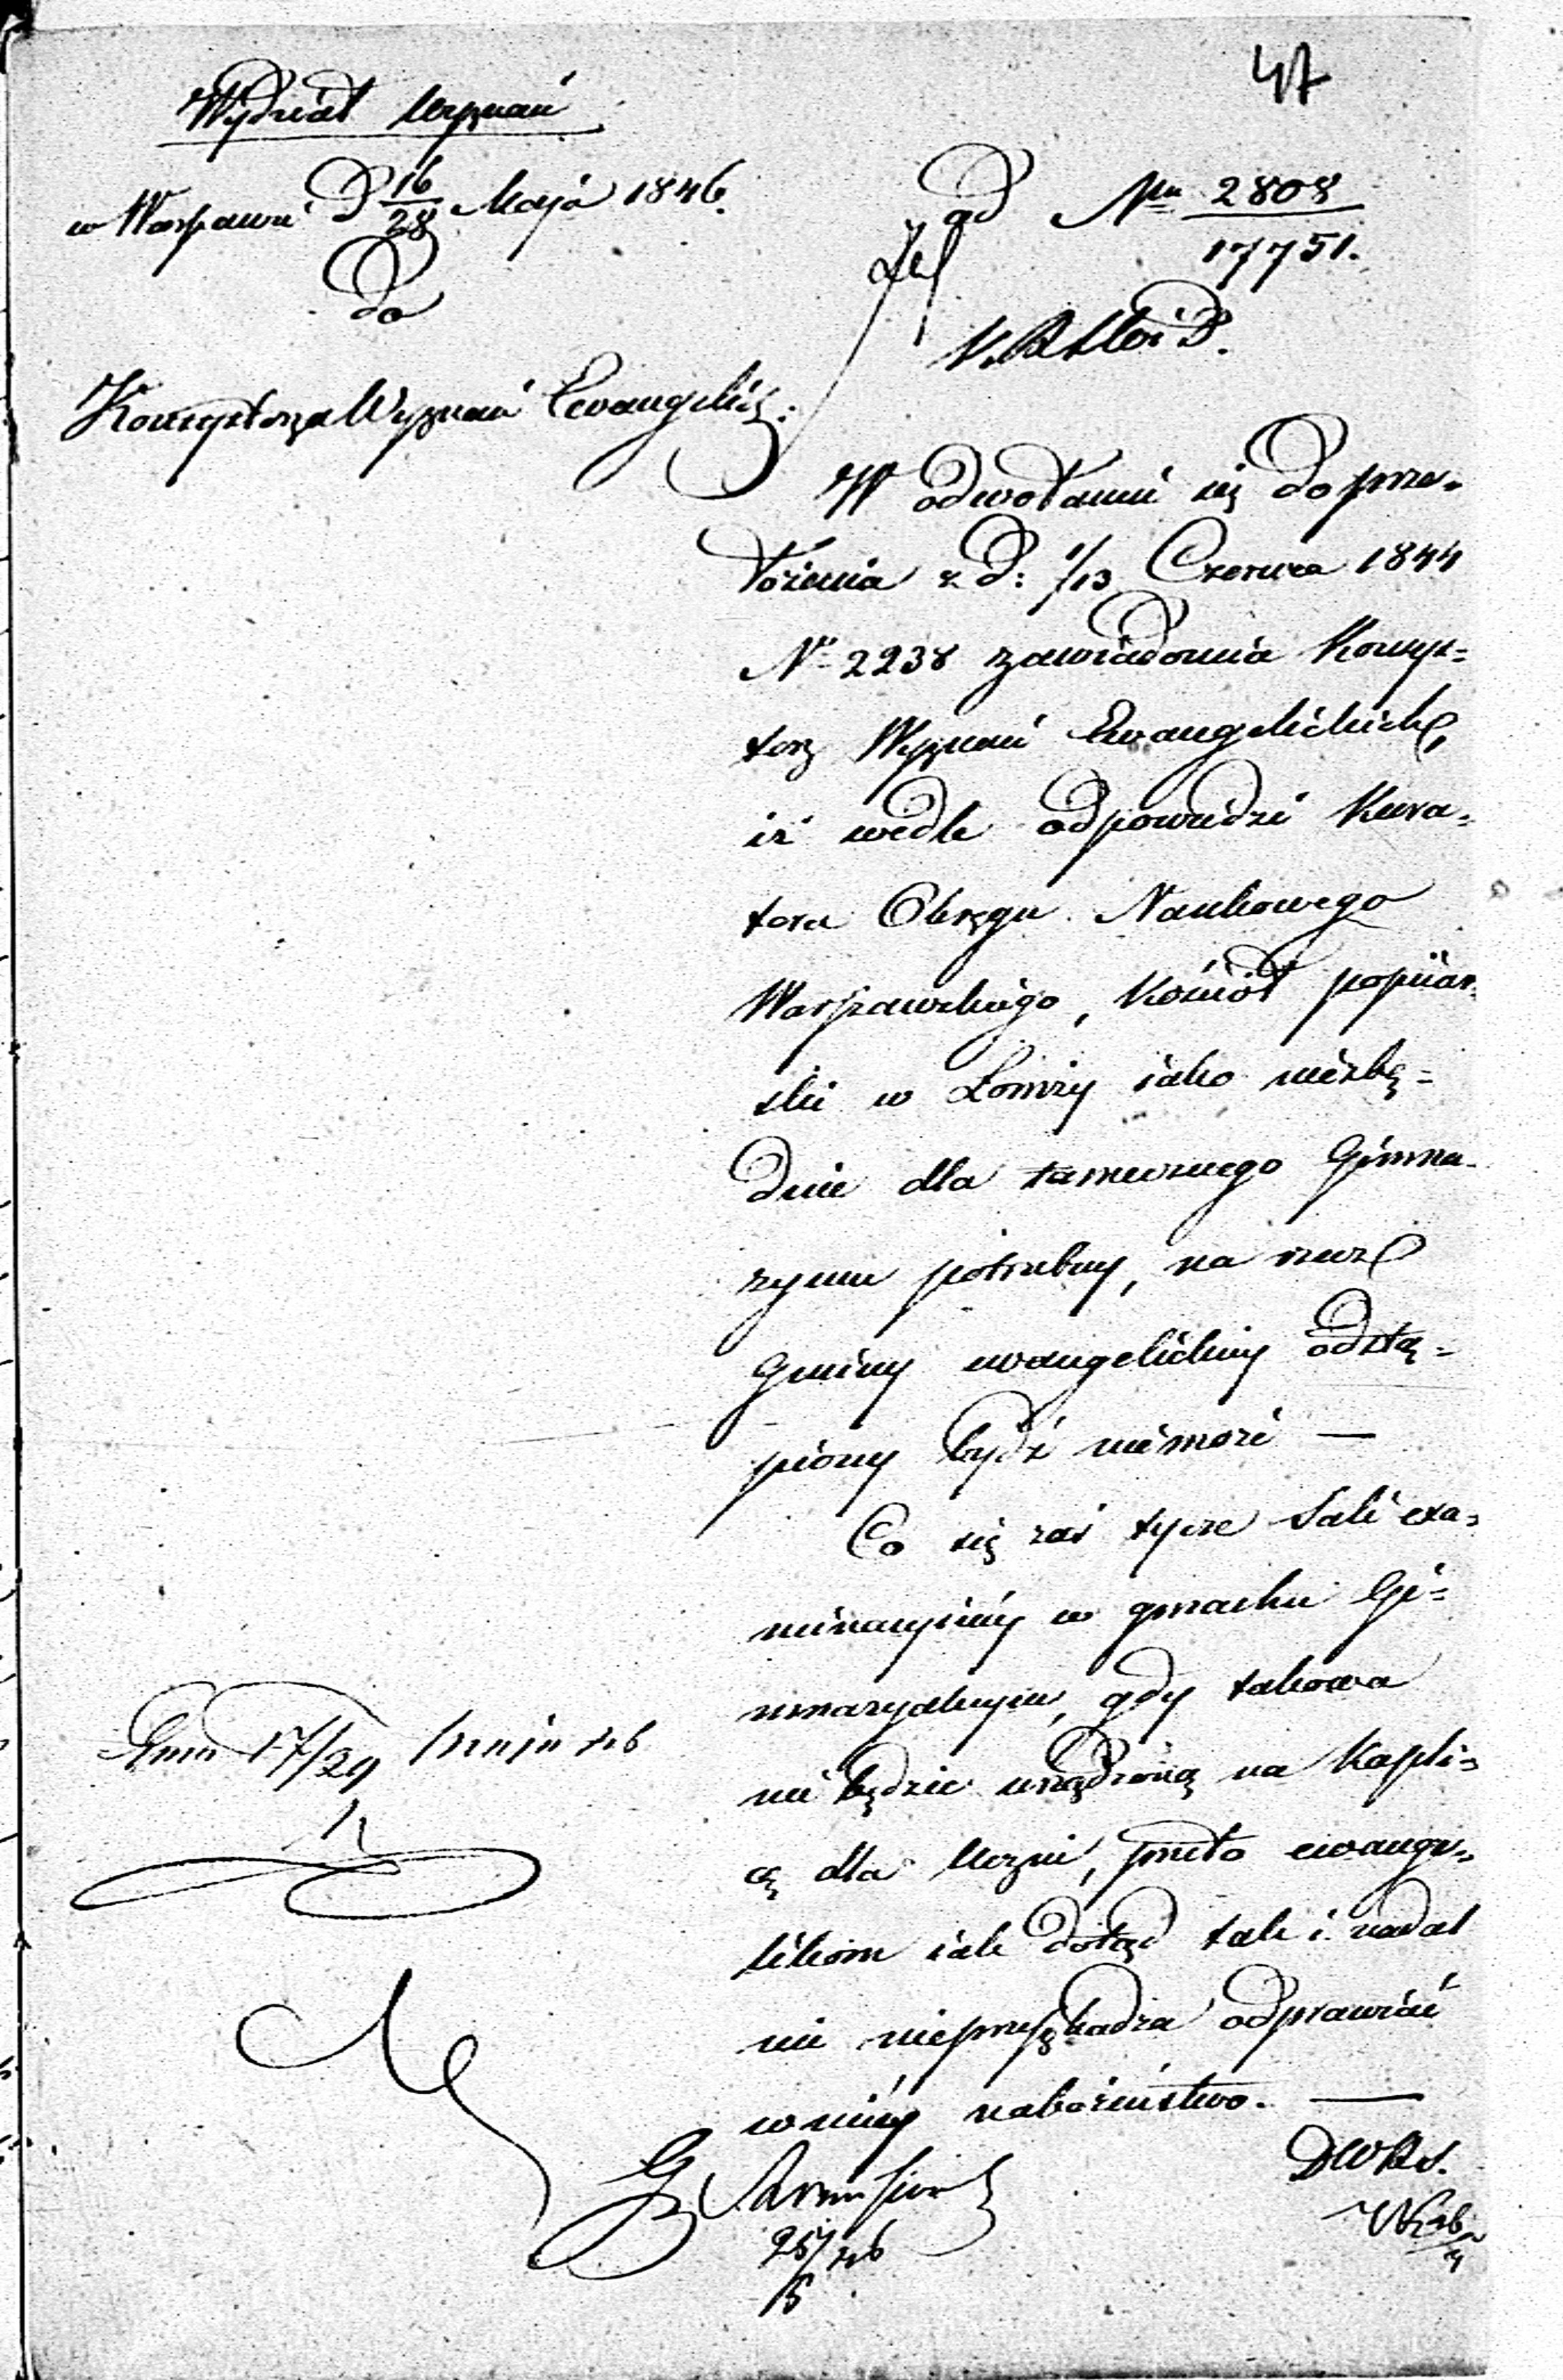 47
Wydział Wyznań
w Warszawie D 16/28 Maja 1846.
do
Konsystorza Wyznań Ewangelic:
ad Nru 2808
17751.
K. R. S. W. i D.
W odwołaniu się do prze-
łożenia z d: 1/13 Czerwca 1844
No 2238 zawiadomia Konsys=
torz Wyznań Ewangelickich,
iż wedle odpowiedzi Kura-
tora Okręgu Naukowego
Warszawskiego, kościół popiiar-
ski w Łomży iako niezbę=
dnie dla tamecznego Gimna-
zyum potrzebny, na rzecz
Gminy ewangelickiey odstą=
piony bydź niemoże —
Co się zaś tycze Sali exa-
minacyiney w gmachu Gi=
mnazyalnym, gdy takowa
nie będzie urządzoną na kapli-
cę dla Uczni, przeto ewange-
likom iak dotąd tak i nadal
nic nieprzeszkadza odprawiać
w niey nabożeństwo. —
Dnia 17/29 maja 46
DWRS.
25/5 46